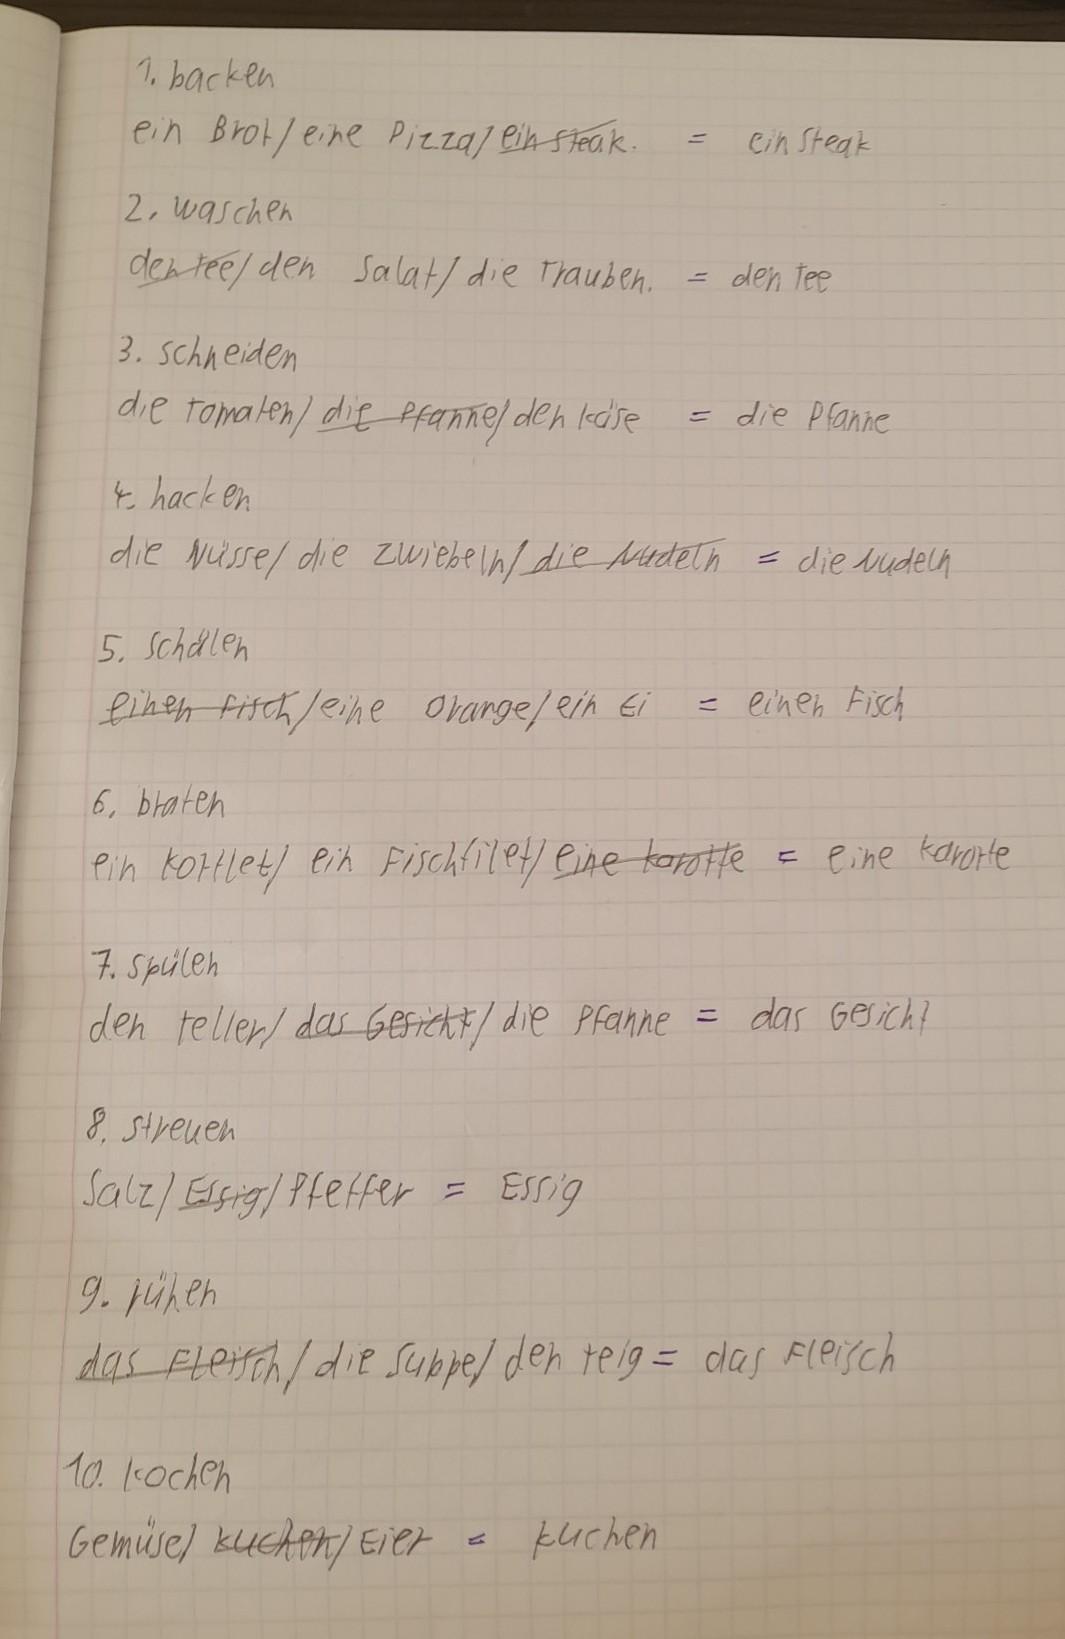 1. backen
ein Brot/eine Pizza/ein Steak. = ein Steak
2. waschen
den Tee/den Salat/die Trauben. = den Tee
3. schneiden
die Tomaten/die Pfanne/den Käse = die Pfanne
4. hacken
die Nüsse/die Zwiebeln/die Nudeln = die Nudeln
5. schälen
einen Fisch/eine Orange/ein Ei = einen Fisch
6. braten
ein Kottlet/ein Fischfilet/eine Karotte = eine Karotte
7. spülen
den Teller/das Gesicht/die Pfanne = das Gesicht
8. streuen
Salz/Essig/Pfeffer = Essig
9. rühen
das Fleisch/die Suppe/den Teig = das Fleisch
10. kochen
Gemüse/Kuchen/Eier = Kuchen